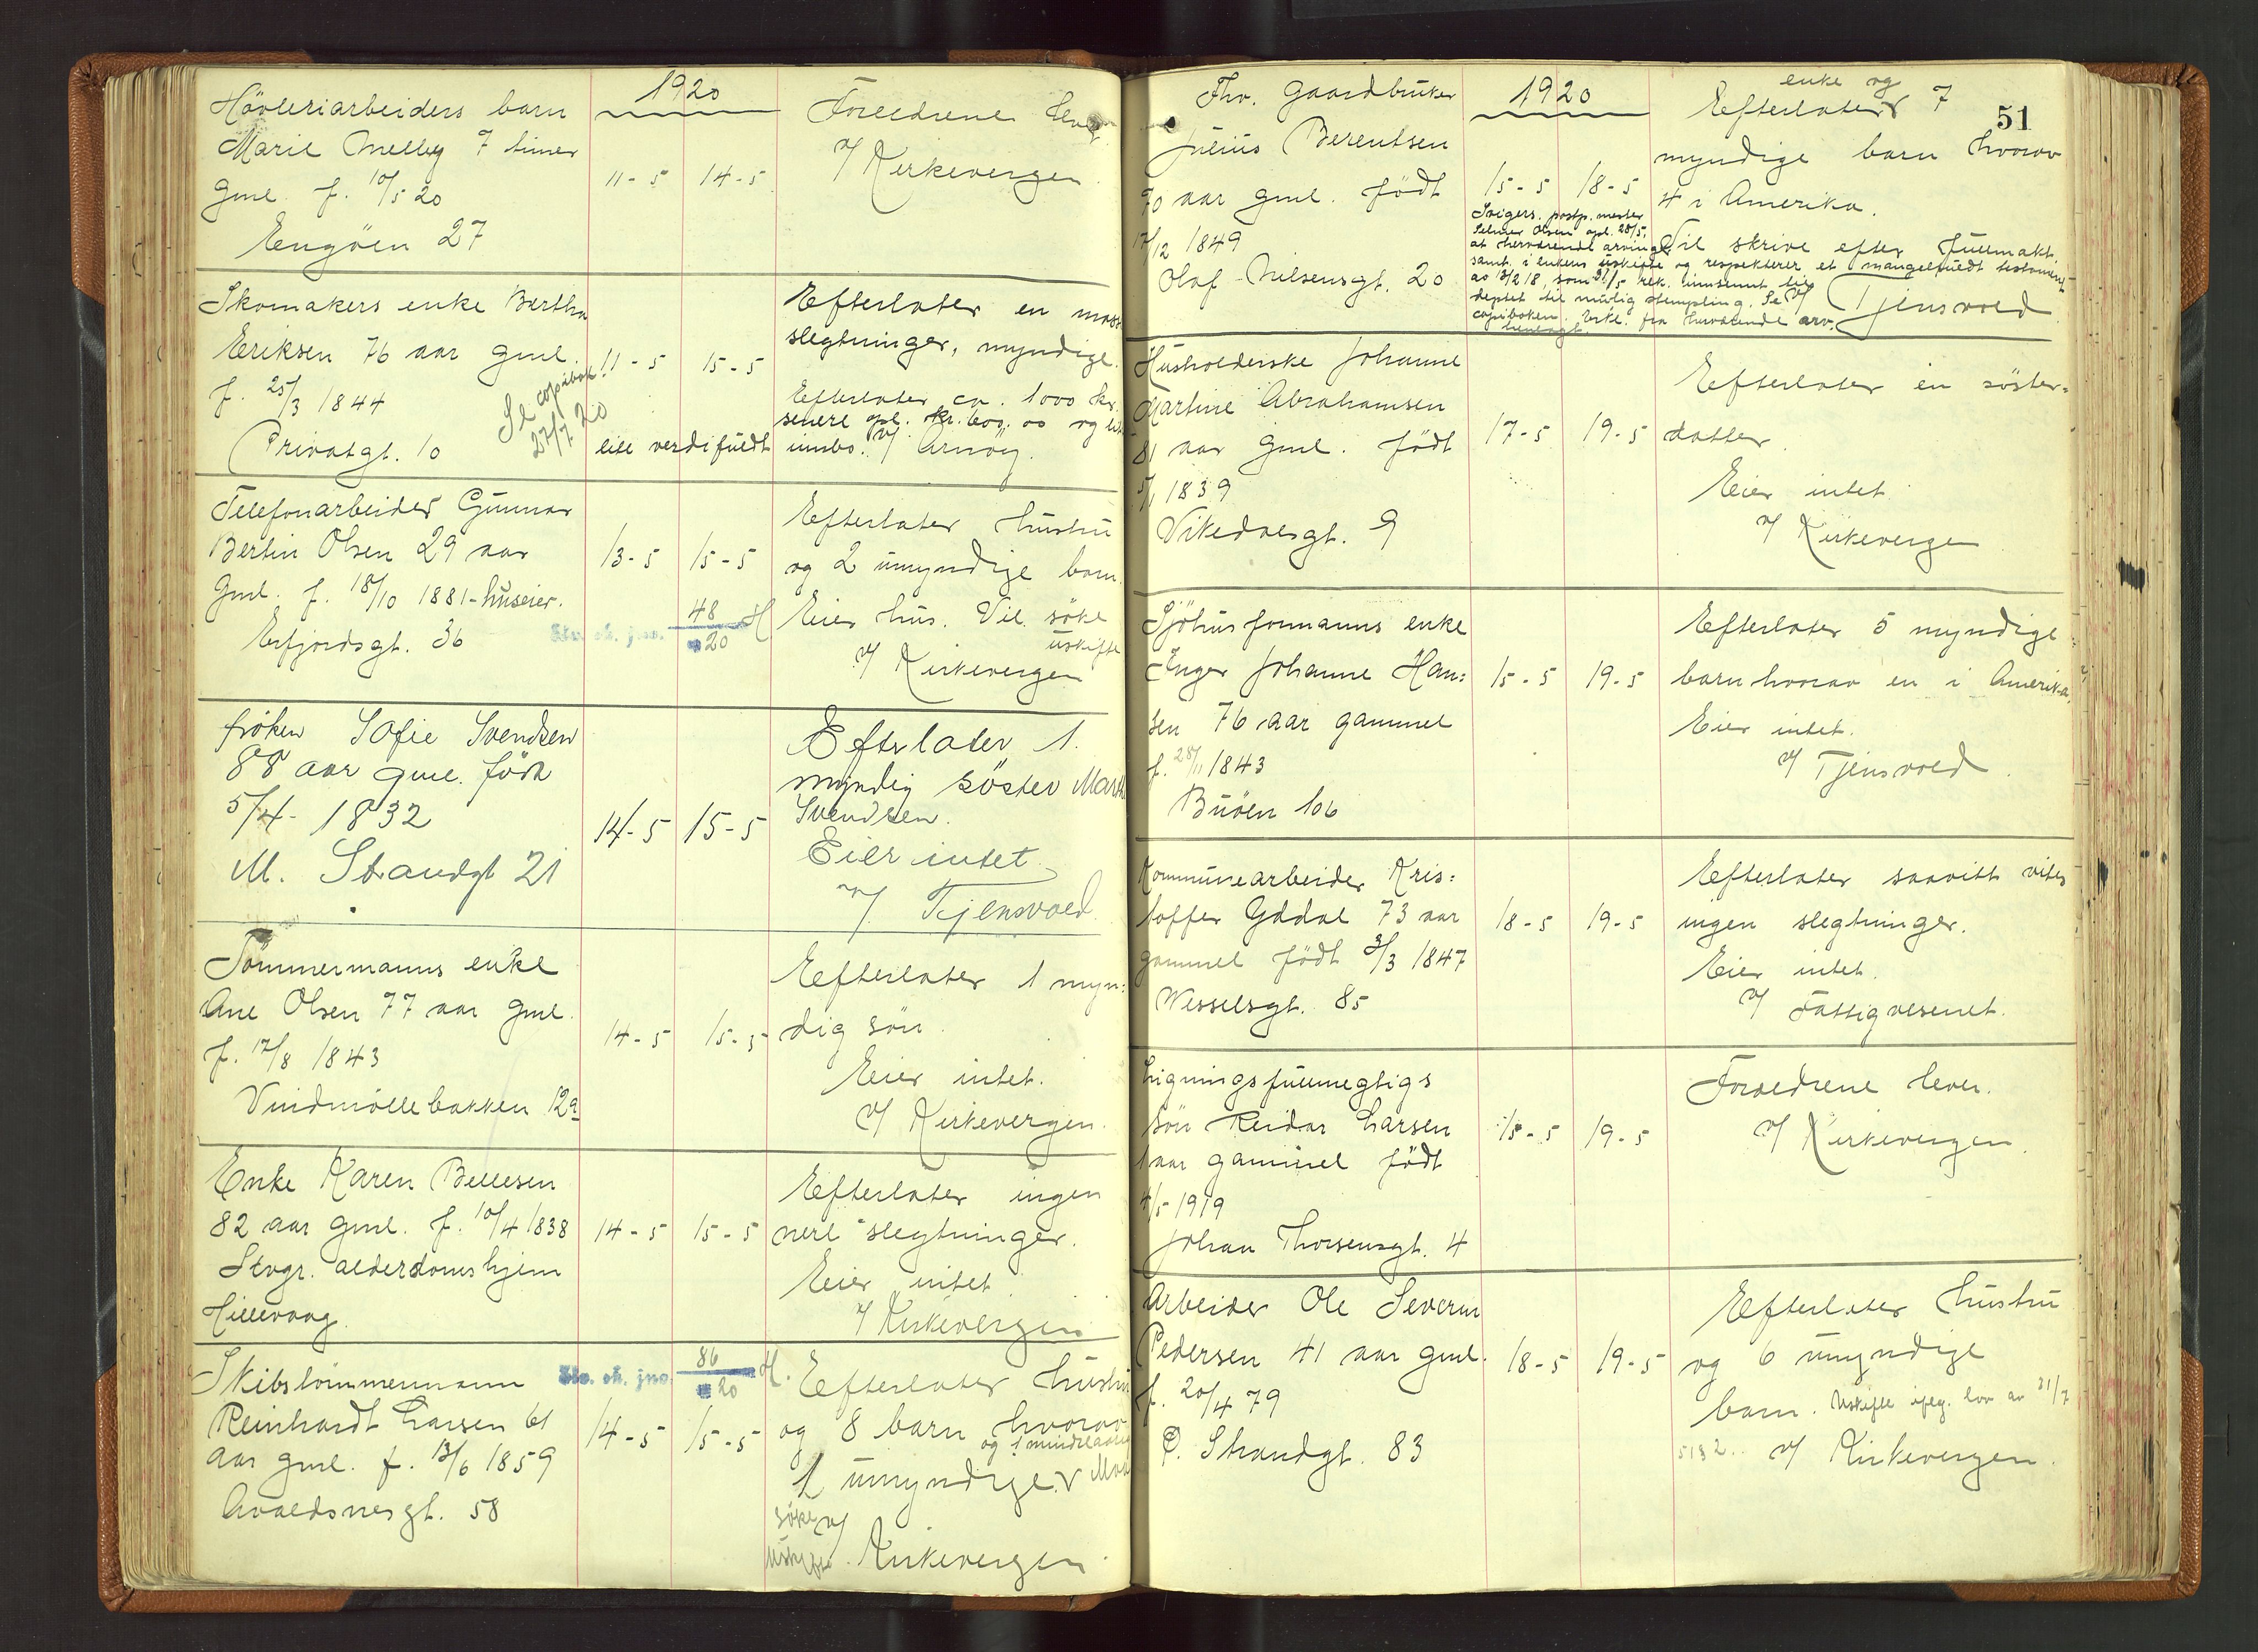 1920
Høvleriarbeiders barn
Marie Melby 7 timer
gml. f. 10/5 20
Engøen 27
11-5 14-5
Forældrene lever
v/ Kirkevergen
Skomakers enke Bertha
Eriksen 76 aar gml.
f. 25/3 1844
Privatgt. 10
Se copibok!
27/7 20
11-5 15-5
Efterlater en
slegtninger, myndige.
Efterlater ca. 1000 kr.
senere opl. kr. 600.00 og
lite verdifuldt innbo. v/ Arnøy.
Telefonarbeider Gunnar
Bertin Olsen 29 aar
gml. f. 18/10 1881 - huseier.
Erfjordsgt. 36
13-5 15-5
48
20
H
Efterlater hustru
og 2 umyndige barn.
Eier hus. Vil søke
uskifte
v/ Kirkevergen
frøken Sofie Svendsen
88 aar gml. født
5/4- 1832
M. Strandgt 21
14-5 15-5
Efterlater 1.
myndig søster
Svendsen.
Eier intet
v/ Tjensvold.
Tømmermanns enke
Ane Olsen 77 aar gml.
f. 12/8 1843
Vindmøllebakken 12a
14-5 15-5
Efterlater 1 myn:
dig søn.
Eier intet.
v/ Kirkevergen.
Enke Karen Bellesen
82 aar gml. f. 10/4 1838
Stvgr. alderdomshjem
Hillevaag.
14-5 15-5
Efterlater ingen
nere slegtninger.
Eier intet.
v/ Kirkevergen
Skibstømmermann
Reinhardt Larsen 61
aar gml. f. 13/6 1859
Avaldsnesgt. 58
86
20
H.
14-5 15-5
Efterlater hustru
og 8 barn hvorav
og 1 mindreaarig
1 umyndige.
søke
uskifte. v/ Kirkevergen.
51
1920
Fhv. Gaardbruker
Julius Berentsen
70 aar gml. født
17/12 1849
Olaf Nilsensgt. 20
15-5 18-5
enke og
Efterlater 7
myndige barn hvorav
4 i Amerika.
Vil skrive efter fuldmakt.
Svigers. postp. mester
Selmer Olsen opl. 28/5,
at herværende arvinger
samt. i enkens uskifte og respekterer et mangelfuldt testament
av 13/2 18, som 31/5 rek. innsendt til
deptet til mulig stempling. Se
copiboken. Erkl. fra herværende arv.
henlagt
v/ Tjensvold
Husholderske Johanne
Martine Abrahamsen
81 aar gml. født
5/1 1839
Vikedalsgt. 9
17-5 19-5
Efterlater en søster-
datter.
Eier intet
v/ Kirkeverge
Sjøhusformanns enke
Inger Johanne Han:
sen 76 aar gammel
f. 28/11 1843
Buøen 106
15-5 19-5
Efterlater 5 myndige
barn hvorav en i Amerika.
Eier intet.
v/ Tjensvold.
Kommunearbeider Kris:
toffer Yddal 73 aar
gammel født 3/3 1847
Wesselsgt. 85
18-5 19-5
Efterlater saavitt vites
ingen slegtninger.
Eier intet.
v/ Fattigvesenet.
Ligningsfullmegtigs
søn Reidar Larsen
1 aar gammel født
4/5 1919
Johan Thorsensgt. 4
15-5 19-5
Forældrene lever.
v/ Kirkevergen.
Arbeider Ole Severin
Pedersen 41 aar gml.
f. 20/4 79
Ø. Strandgt. 83
18-5 19-5
Efterlater hustru
og 6 umyndige
barn. Uskifte ifølg. lov av 31/7
v/ Kirkevergen.